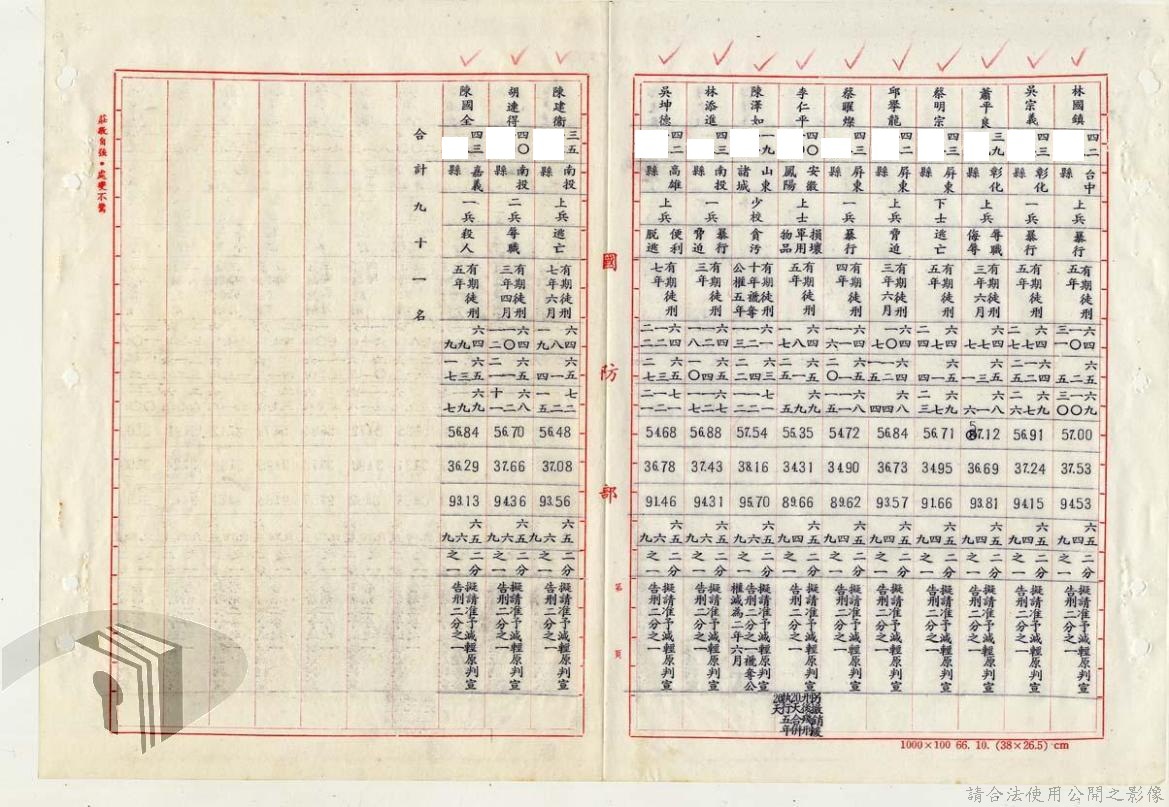 林國鎮 四二 台中縣 上兵 暴行 有期徒刑五年 57.00 37.53 94.53 六五 九四 二分之一 擬請准予減輕原判宣告刑二分之一
吳宗義 四三 彰化縣 一兵 暴行 有期徒刑五年 56.91 37.24 94.15 六五 九四 二分之一 擬請准予減輕原判宣告刑二分之一
蕭平良 三九 彰化縣 上兵 辱職侮辱 有期徒刑三年六月 57.12 36.69 93.81 六五 九四 二分之一 擬請准予減輕原判宣告刑二分之一
蔡明宗 四三 屏東縣 下士 逃亡 有期徒刑五年 56.71 34.95 91.66 六五 九四 二分之一 擬請准予減輕原判宣告刑二分之一
邱擧龍 四二 屏東縣 上兵 脅迫 有期徒刑三年六月 56.84 36.73 93.57 六五 九四 二分之一 擬請准予減輕原判宣告刑二分之一
蔡曜燦 四三 屏東縣 一兵 暴行 有期徒刑四年 54.72 34.90 89.62 六五 九四 二分之一 擬請准予減輕原判宣告刑二分之一
李仁平 四〇 安徽鳳陽 上士 損壞軍用物品 有期徒刑五年 55.35 34.31 89.66 六五 九四 二分之一 擬請准予減輕原判宣告刑二分之一
陳澤如 一九 山東諸城 少校 貪污 有期徒刑十年褫奪公權五年 57.54 38.16 95.70 六五 九六 二分之一 擬請准予減輕原判宣告刑二分之一褫奪公權減為二年六月
林添進 四三 南投縣 一兵 暴行脅迫 有期徒刑三年 56.88 37.43 94.31 六五 九六 二分之一 擬請准予減輕原判宣告刑二分之一
吳坤德 四二 高雄縣 上兵 便利脫逃 有期徒刑七年 54.68 36.78 91.46 六五 九六 二分之一 擬請准予減輕原判宣告刑二分之一
1000×100 66. 10. (38×26.5) cm
國防部
第 頁
陳建衞 三五 南投縣 上兵 逃亡 有期徒刑七年六月 56.48 37.08 93.56 六五 九六 二分之一 擬請准予減輕原判宣告刑二分之一
胡達得 四〇 南投縣 二兵 辱職 有期徒刑三年四月 56.70 37.66 94.36 六五 九六 二分之一 擬請准予減輕原判宣告刑二分之一
陳國全 四三 嘉義縣 一兵 殺人 有期徒刑五年 56.84 36.29 93.13 六五 九六 二分之一 擬請准予減輕原判宣告刑二分之一
合計九十一名
莊敬自強・處變不驚
請合法使用公開之影像